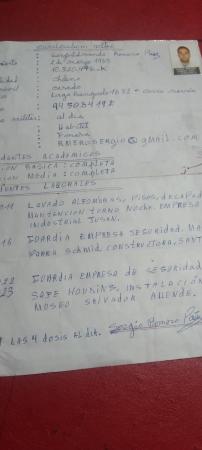 curriculum vitae
Romero Páez
: 26 marzo 1963
: 10.320.
: chileno
: casado
: Largo
: 945084192
: al dia
: Habitat
: Fonasa
: RMEROSERGIO@gmail.com
dentes Academicos
ION BASICA: completa
cion Media: completa
dentes LABORALES
011 LAVADO ALFOMBRAS, PISOS, DECAPAD
MANTENCION TURNO Noche. EMPRESA
INDUSTRIAL
16 GUARDIA EMPRESA SEGURIDAD.
PARRA Schmid CONSTRUCTORA, SANT
022 GUARDIA EMPRESA DE SEGURIDAD
23 SAFE HOUSING, INSTALACIÓN
MUSEO SALVADOR ALLENDE.
LAS 4 DOSIS AL DIA. Sergio Romero Páez